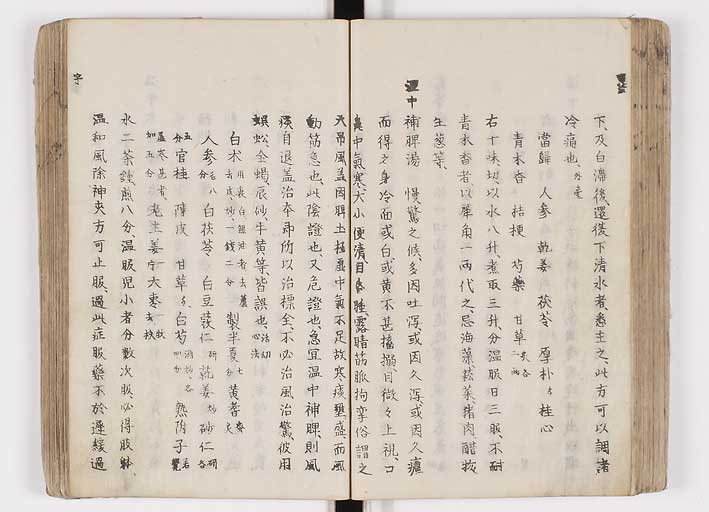 下、及白滞後、還後下清水者、悉主之、此方可以調諸
冷痛也、外臺
當歸 人参 乾姜 茯苓 厚朴 桂心
青木香 桔梗 芍藥 甘草
右十味切、以水八升、煮取三升、分温服日三服、不耐
青木香者、以犀角一両代之、忌海藻菘菜、猪肉醋物
生葱等、
温中補脾湯 慢驚之候、多因吐瀉、或因久瀉、或因久瘧
而得之、身冷而或白或黄、不甚搐搦、目微々上視、口
鼻中氣寒、大小便清、目睡露睛、筋脈拘攣、俗謂之
天吊風、盖因脾土極虚、中氣不足、故寒痰壅盛、而風
動筋急也、此陰證也、又危證也、急宜温中補脾、則風
痰自退、盖治本即所以治標、全不必治風治驚、彼用
蜈蚣、全蝎、辰砂、牛黄等、皆誤也、活幼心法
白术 製半夏 七分 黄蓍
人参 白茯苓 白豆蔲仁 研 乾姜 炒 砂仁 研各
五分 官桂 陳皮 甘草 白芍 酒炒 熟附子
如五分 老生姜 大棗
水二茶鍾、煎八分、温服、兒小者分数次服、必得肢体
温和、風除神爽、方可止服、過此症服藥、不於遅緩過